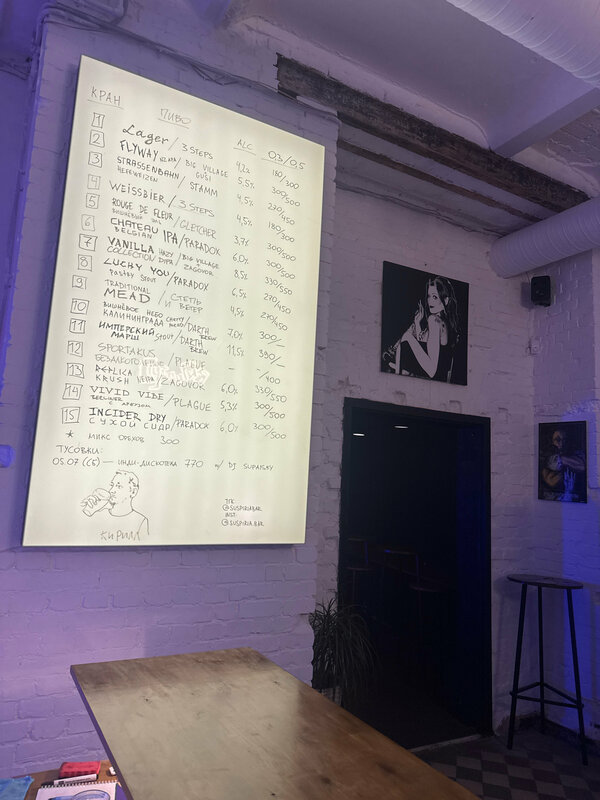 КРАН ПИВО ALC 0.3/0.5
1 Lager / 3 STEPS 4,2% 180/300
2 FLYWAY / BIG VILLAGE 5,5% 300/500
3 STRASSENBAHN / STAMM 4,5% 270/450
HEFEWEIZEN
4 WEISSBIER / 3 STEPS 4,5% 180/300
5 ROUGE DE FLEUR / GLETCHER 3,7% 300/500
ВИШНЁВЫЙ ЭЛЬ
6 CHATEAU IPA / PARADOX 6,0% 300/500
BELGIAN
7 VANILLA HAZY / BIG VILLAGE 8,5% 330/550
COLLECTION DIPA / ZAGOVOR
8 LUCKY YOU / PARADOX 6,5% 270/450
Pastry Sour
9 TRADITIONAL / СТЕПЬ 4,5% 270/450
MEAD И ВЕТЕР
10 ВИШНЁВОЕ НЕБО CHERRY / DARTH 7,0% 300/—
КАЛИНИНГРАДА MEAD / BREW
11 ИМПЕРСКИЙ STOUT / DARTH 11,5% 380/—
МАРШ BREW
12 SPORTAKUS / PLAGUE — —/400
БЕЗАЛКОГОЛЬНОЕ
13 REPLICA / ZAGOVOR 6,0% 330/550
KRUSH
14 VIVID VIBE / PLAGUE 5,3% 300/500
BERLINER С АРБУЗОМ
15 INCIDER DRY / PARADOX 6,0% 300/500
СУХОЙ СИДР
* МИКС ОРЕХОВ 300
ТУСОВКИ:
05.07 (СБ) — ИНДИ-ДИСКОТЕКА 770 w/ DJ SUPAISKY
КИРИЛЛ
ТГК:
@SUSPIRIABAR
INST:
@SUSPIRIA.BAR